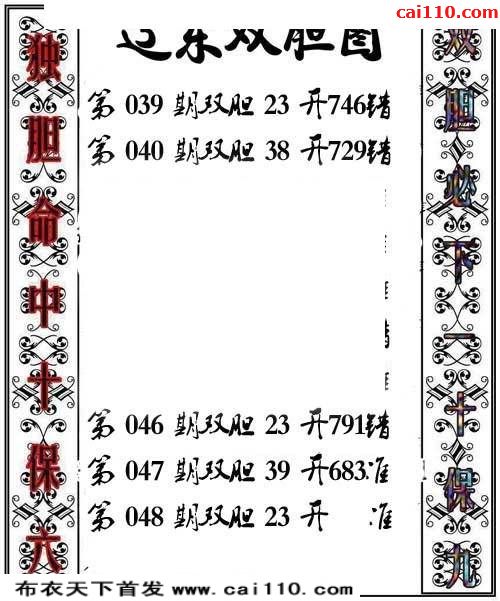 cai110.com
辽东双胆图
独胆命中十保六
第 039 期双胆 23 开746错
第 040 期双胆 38 开729错
第 046 期双胆 23 开791错
第 047 期双胆 39 开683准
第 048 期双胆 23 开 准
双胆必下一十保九
布衣天下首发 www.cai110.com